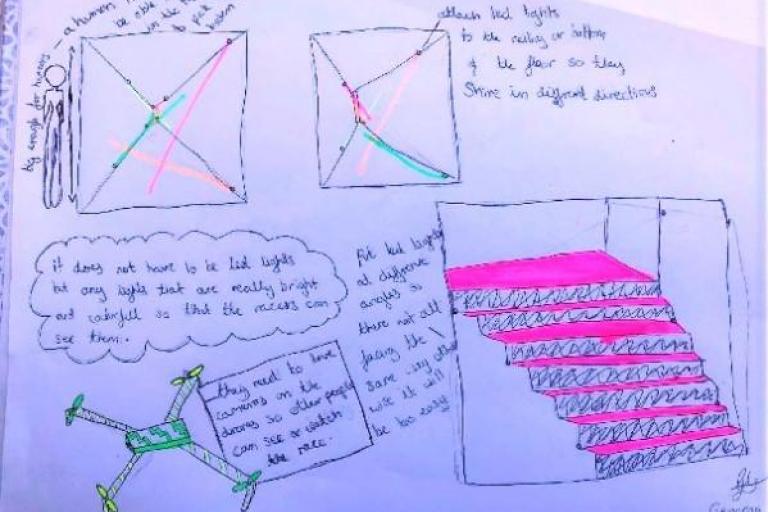 a human
be able
in the
to
big enough for humans
attach led lights
to the ceiling or bottom
& the floor so they
Shine in different directions
it does not have to be led lights
but any lights that are really bright
and colourful so that the racers can
see them.
Put led lights
at different
angles so
there not all
facing the
same way other
wise it will
be too easy
they need to have
cameras on the
drones so other people
can see or watch
the race.